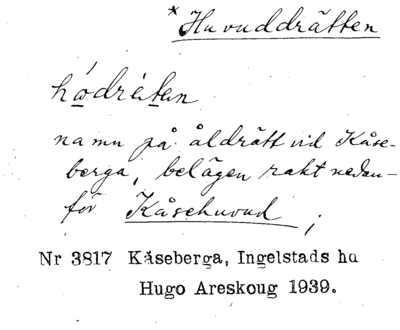 *Huvuddrätten
hódrètan
namn på åldrätt vid Kåse-
berga, belägen rakt nedan-
för Kåsehuvud ;
Nr 3817 Kåseberga, Ingelstads hd
Hugo Areskoug 1939.